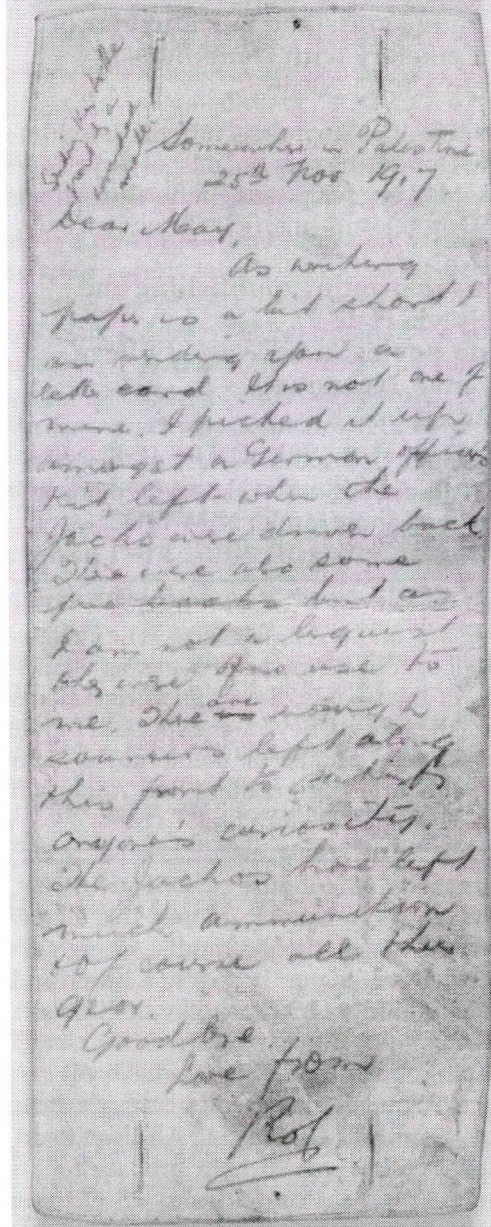 Somewhere in Palestine
25th Nov 1917
Dear May,
As writing
paper is a bit short I
am writing upon a
letter card. It is not one of
mine. I picked it up
amongst a German officer's
kit, left when the
Jackos were driven back
There were also some
books but as
I am not a linguist
they were of no use to
me. There are enough
souvenirs left along
this front to satisfy
anyone's curiosity.
The Jackos have left
much ammunition
& of course all their
gear.
Goodbye.
Love from
Rob